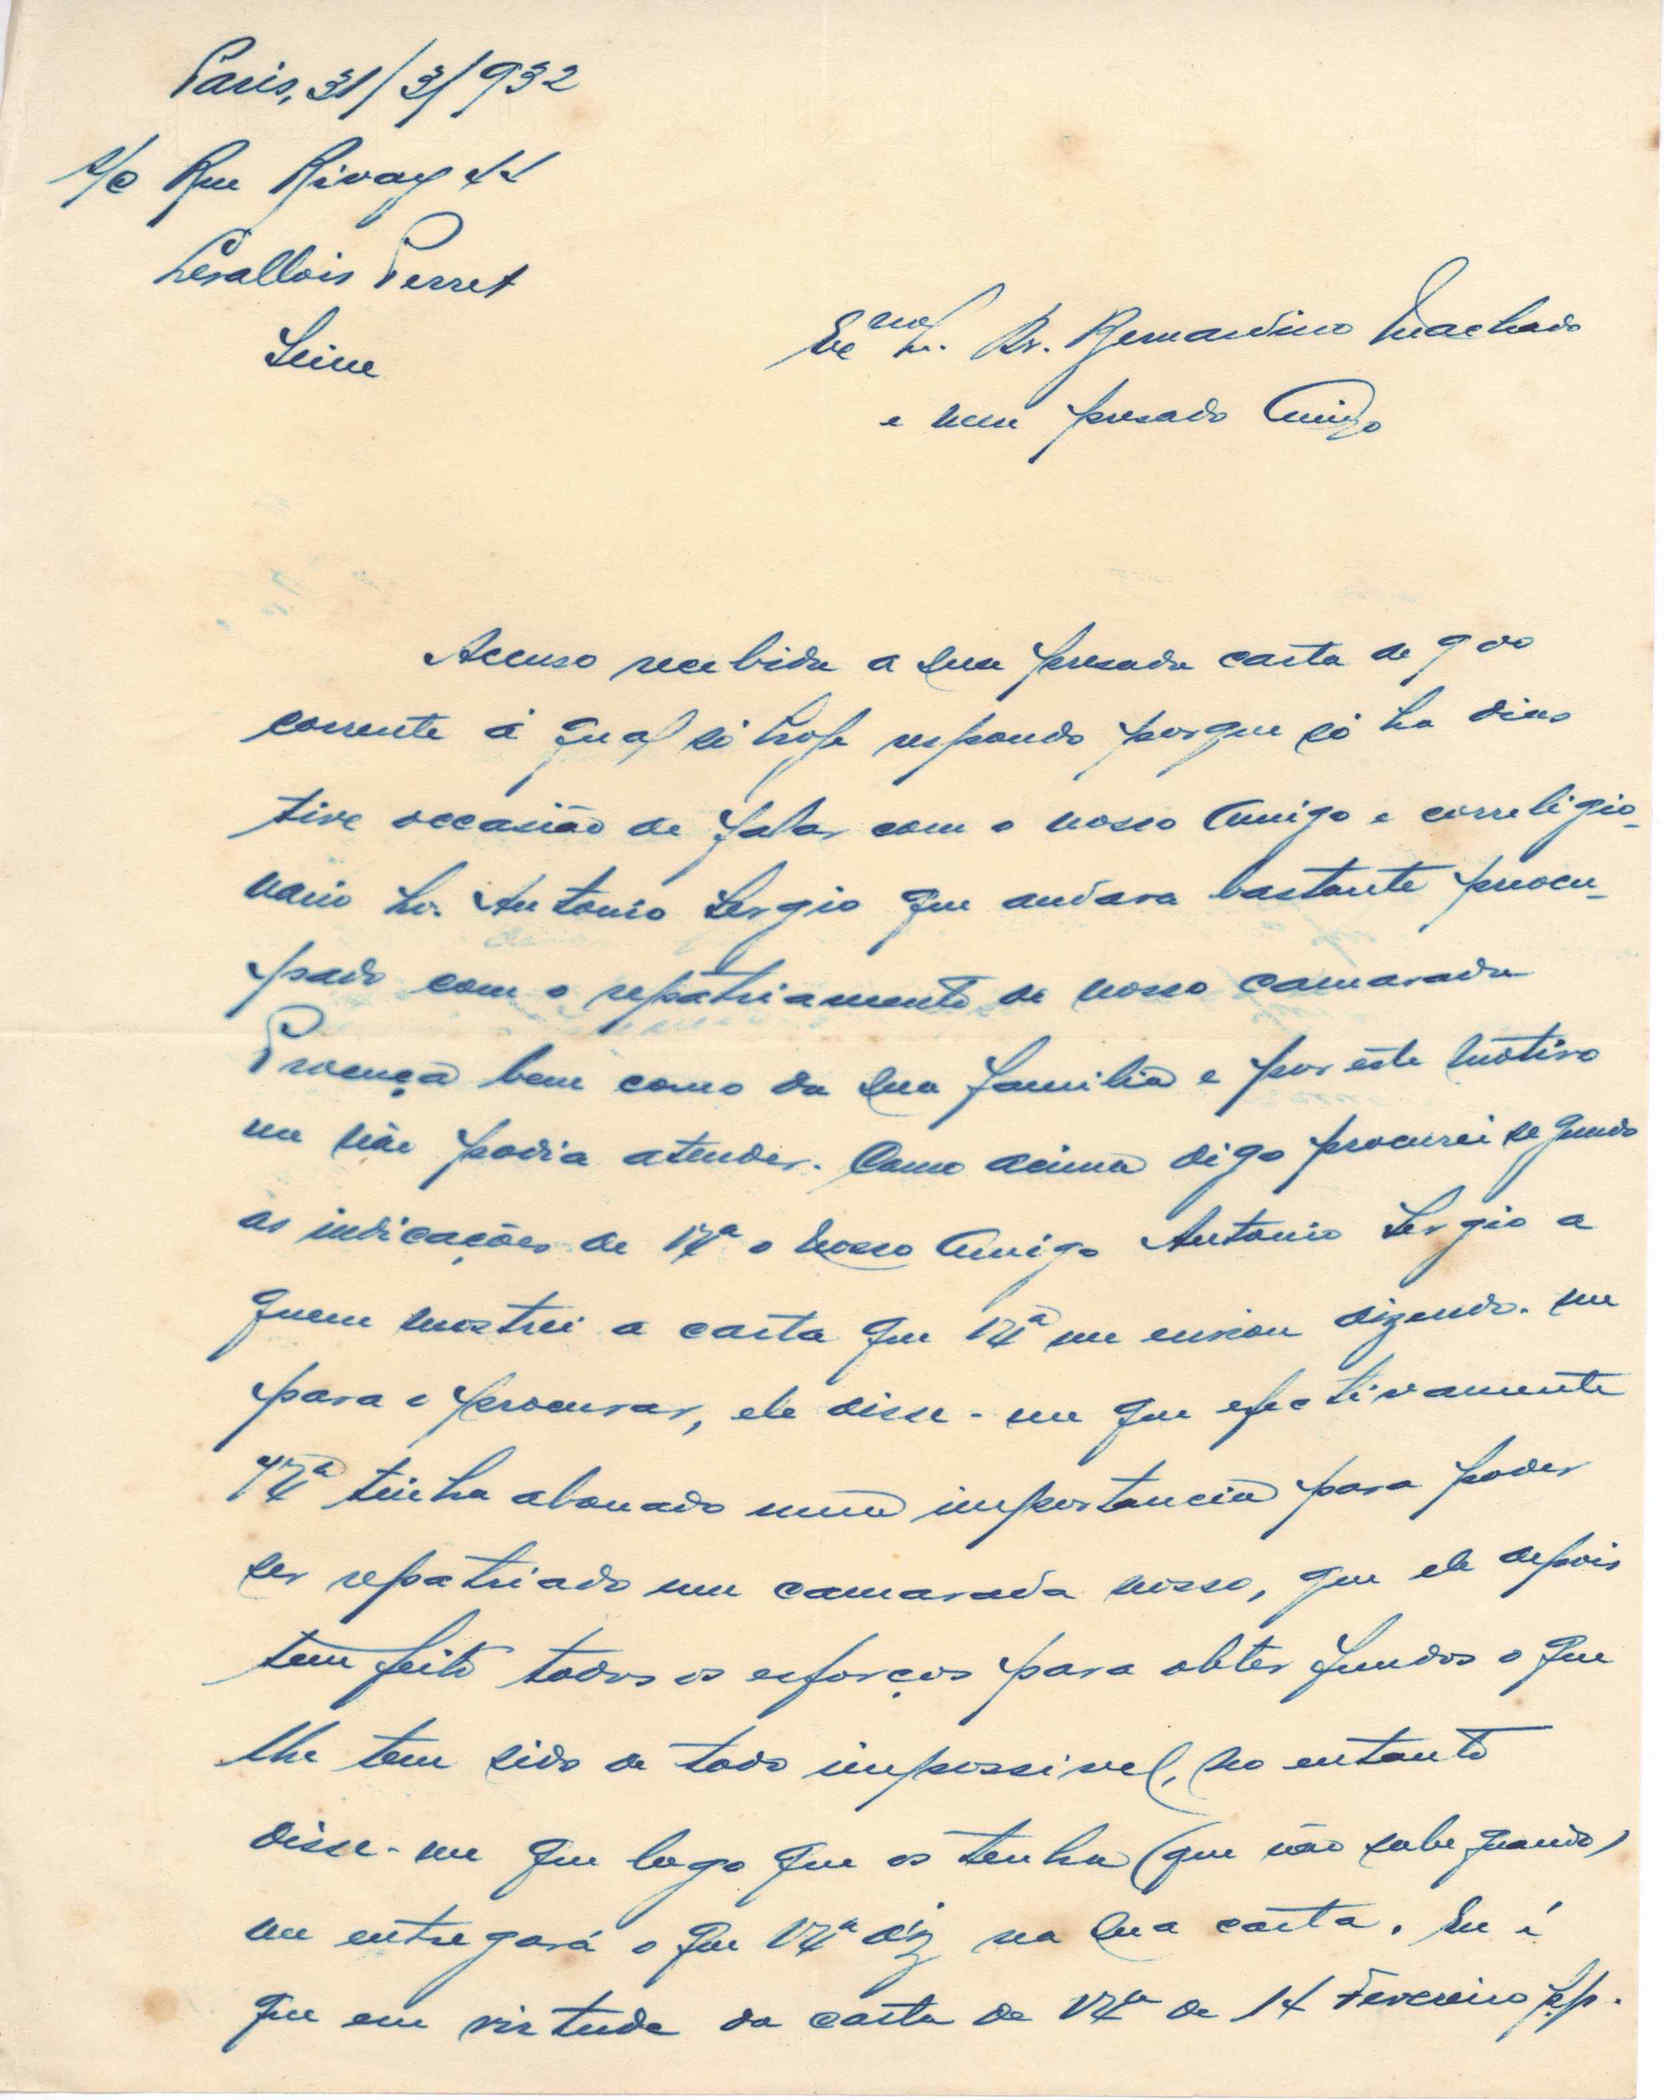 Paris, 31/3/932
s/c Rue Rivay
Levallois Perret
Seine
Ex.mo Sr. Dr. Bernardino Machado
e meu presado Amigo
Accuso recebida a sua presada carta de 9 do
corrente á qual só hoje respondo porque só ha dias
tive occasião de falar com o nosso Amigo e correligio-
nario Sr. Antonio Sergio que andava bastante preocu-
pado com o repatriamento de nosso camarada
Proença bem como da sua familia e por este motivo
me não podia atender. Como acima digo procurei segundo
as indicações de V.Ex.ª o nosso Amigo Antonio Sergio a
quem mostrei a carta que V.Ex.ª me enviou dizendo-me
para o procurar, ele disse-me que efectivamente
V.Ex.ª tinha abonado uma importancia para poder
ser repatriado um camarada nosso, que ele depois
tem feito todos os esforços para obter fundos o que
lhe tem sido de todo impossivel, no entanto
disse-me que logo que os tenha (que não sabe quando)
me entregará o que V.Ex.ª diz na sua carta. Eu é
que em virtude da carta de V.Ex.ª de 14 Fevereiro p.p.